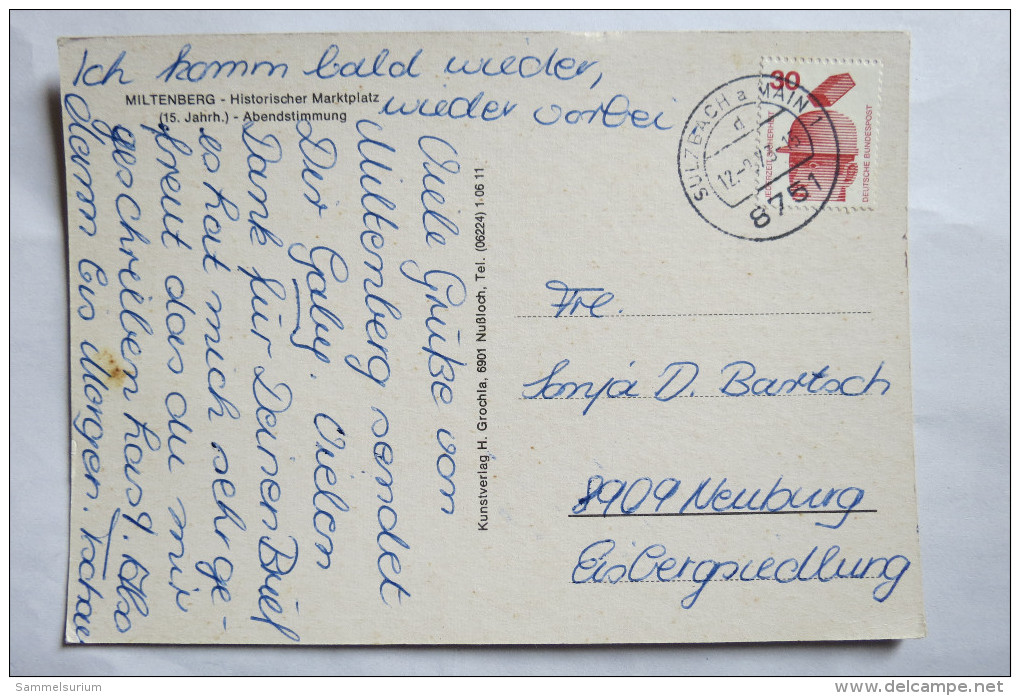 Ich komm bald wieder,
wieder vorbei
MILTENBERG - Historischer Marktplatz
(15. Jahrh.) - Abendstimmung
Viele Grüße von
Miltenberg sendet
Dir Gaby. Vielen
Dank für Deinen Brief
es hat mich sehr ge-
freut das du mir
geschrieben hast. Also
Bis Morgen. Tschau
Kunstverlag H. Grochla, 6901 Nußloch, Tel. (06224) 1 06 11
30
DEUTSCHE BUNDESPOST
SULZBACH a MAIN 1
d
8751
Frl.
Sonja D. Bartsch
8909 Neuburg
Eisbergsiedlung
Sammelsurium
www.delcampe.net